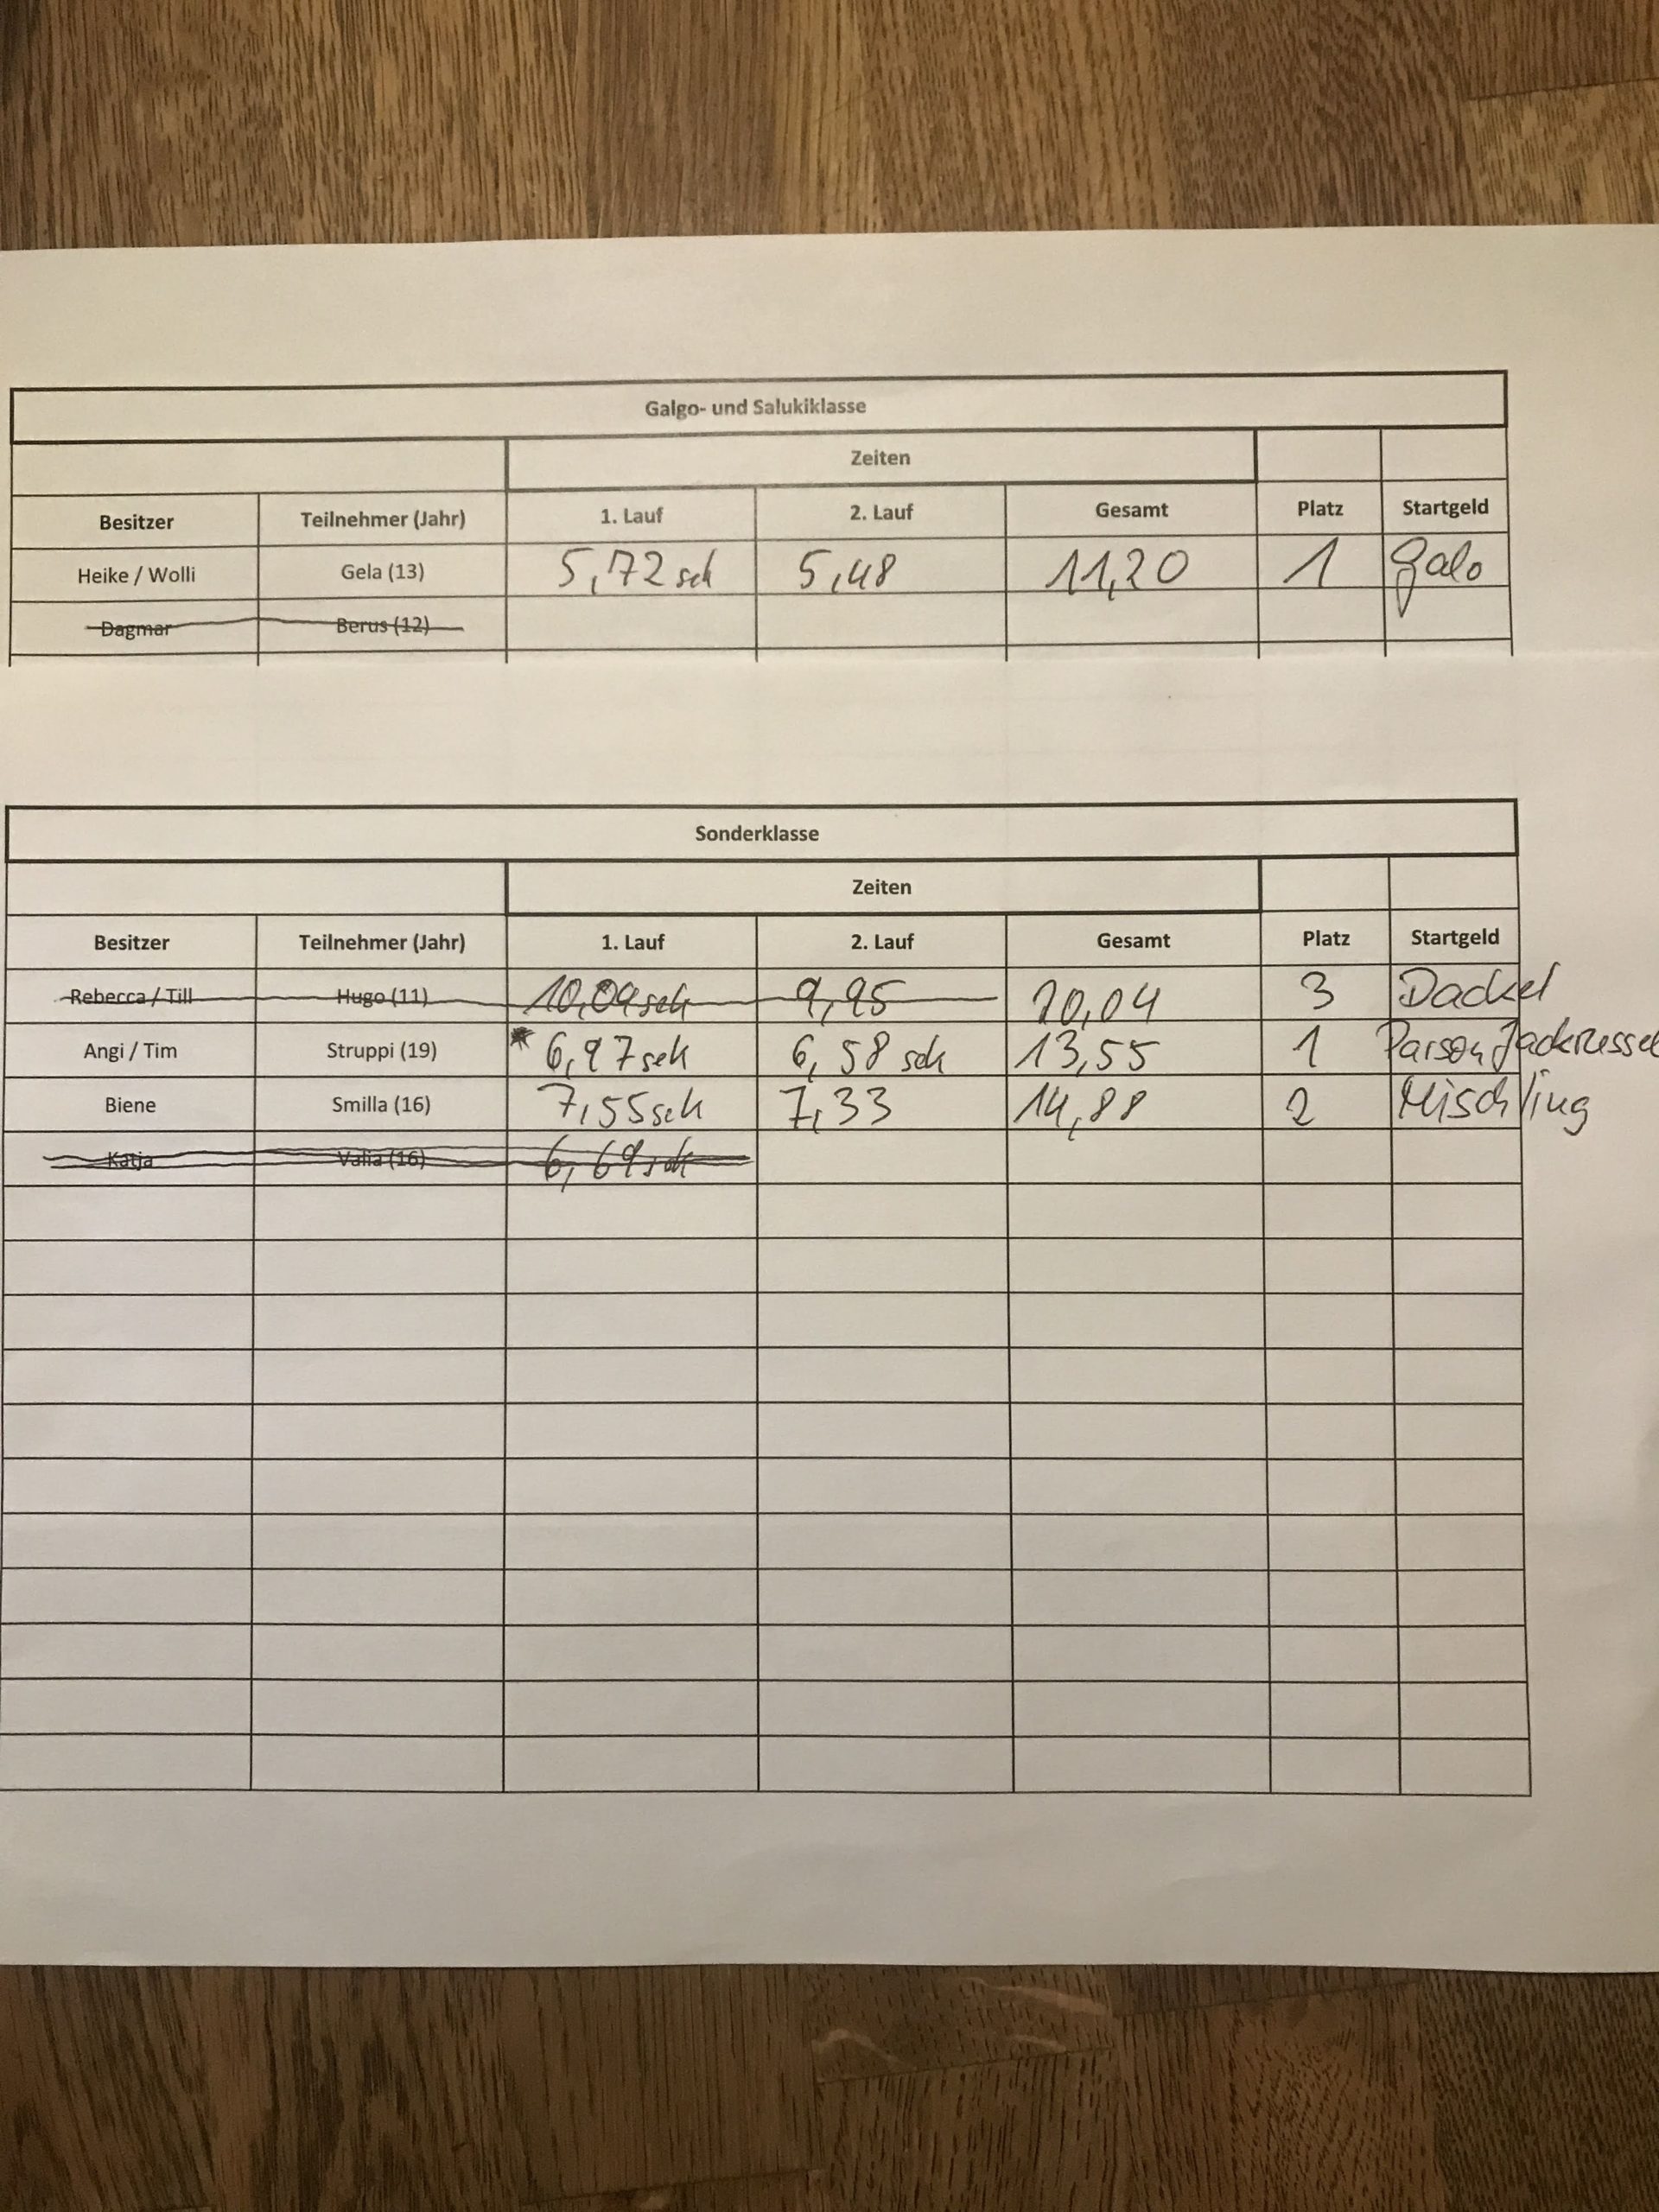 Galgo- und Salukiklasse
Zeiten
Besitzer Teilnehmer (Jahr) 1. Lauf 2. Lauf Gesamt Platz Startgeld
Heike / Wolli Gela (13) 5,72 sek 5,48 11,20 1 Galo
Dagmar Berus (12)
Sonderklasse
Zeiten
Besitzer Teilnehmer (Jahr) 1. Lauf 2. Lauf Gesamt Platz Startgeld
Rebecca / Till Hugo (11) 10,09 sek 9,95 20,04 3 Dackel
Angi / Tim Struppi (19) * 6,97 sek 6,58 sek 13,55 1 Parson Jackrussel
Biene Smilla (16) 7,55 sek 7,33 14,88 2 Mischling
Katja Valia (16) 6,69 sek